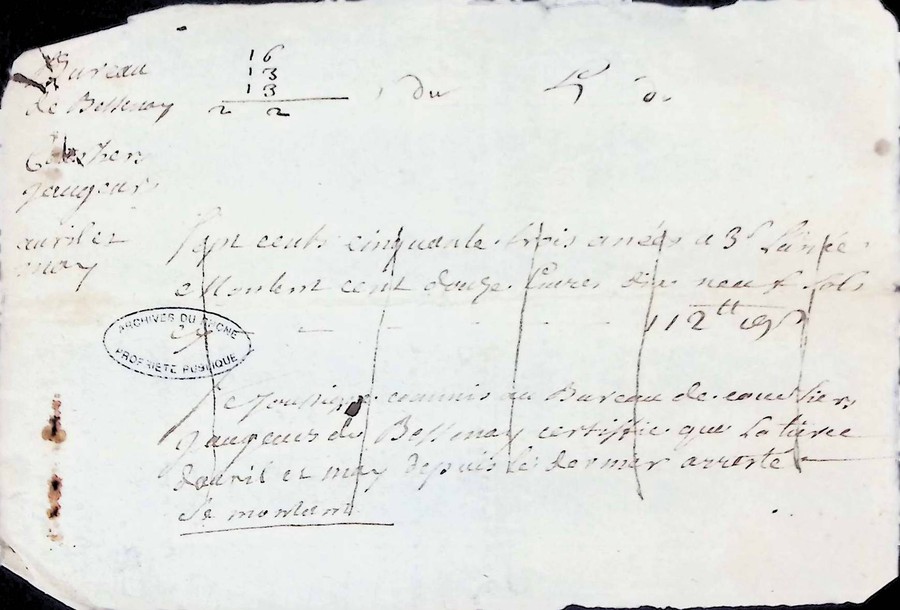 Bureau
de Bessenay
16
13
13
2 2
du
Courtiers
jaugeurs
avril et
may
Sept cents cinquante trois anées a 3s L'anée
Montent cent douze Livres dix neuf sols
112tt 19s
ARCHIVES DU RHONE
PROPRIETE PUBLIQUE
Je soussigné commis au Bureau de courtiers
jaugeurs de Bessenay certiffie que La
davril et may depuis le dernier arresté
Se montant